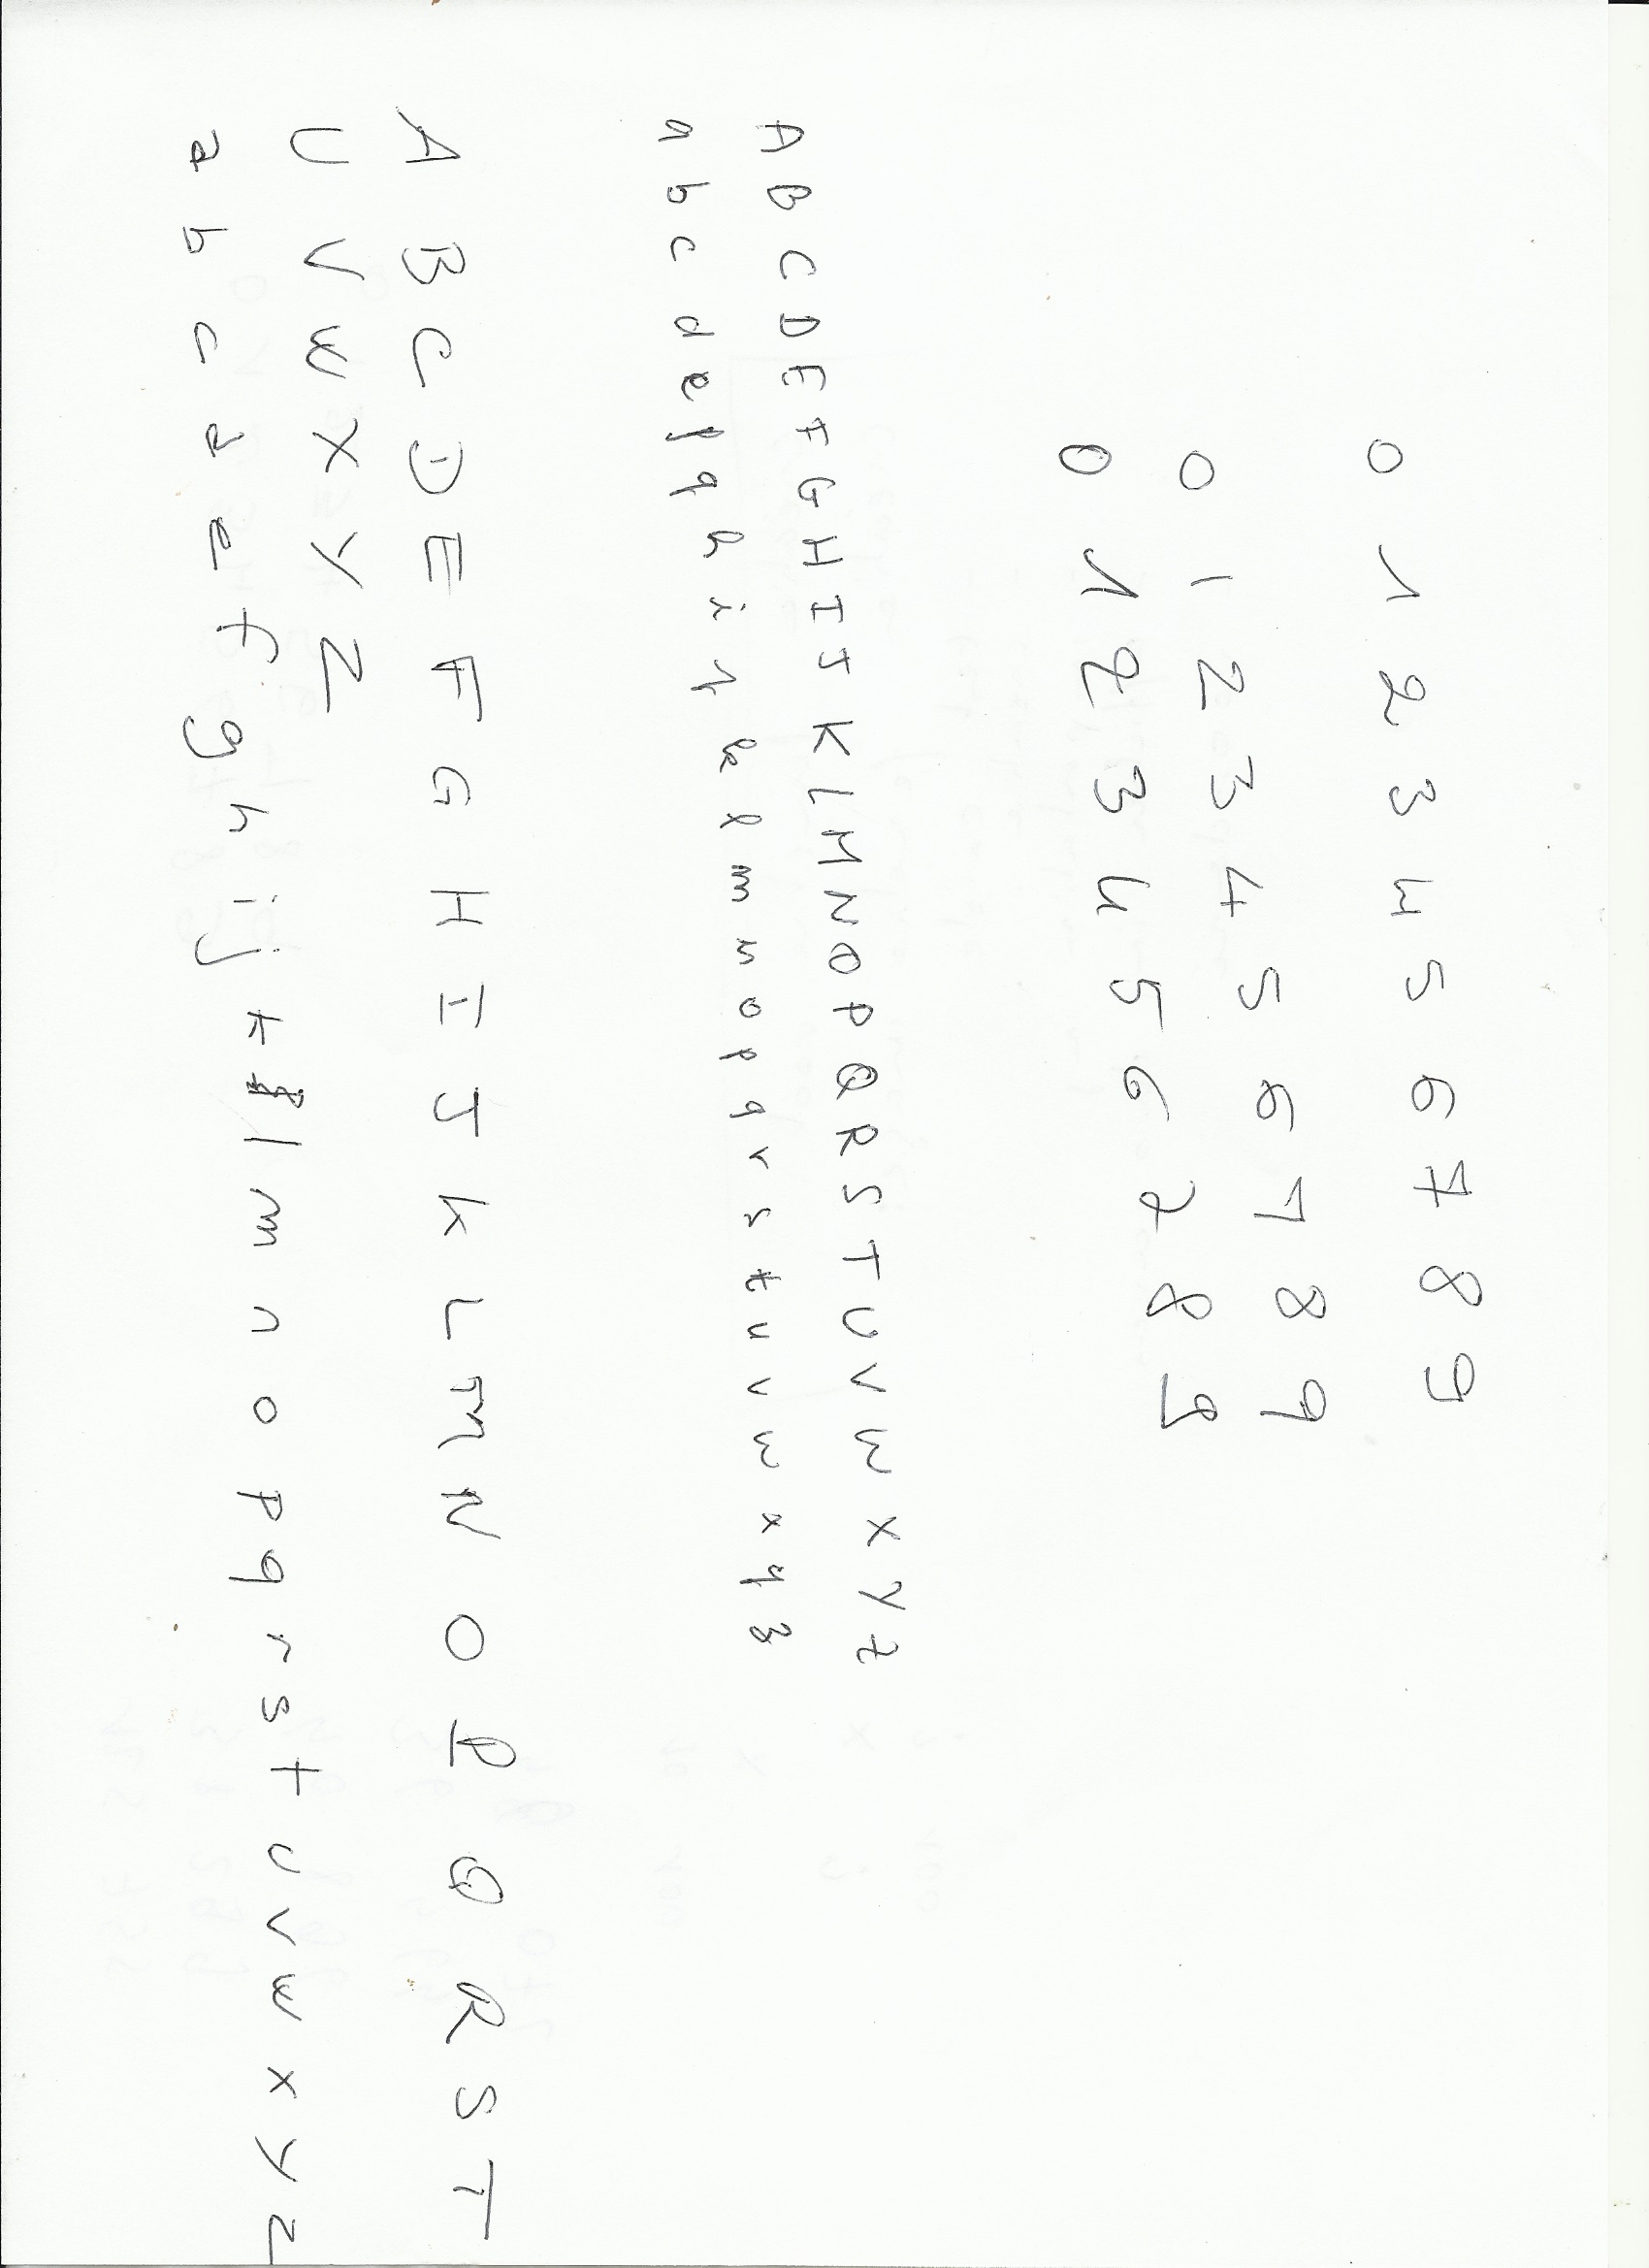 0 1 2 3 4 5 6 7 8 9
0 1 2 3 4 5 6 7 8 9
0 1 2 3 4 5 6 7 8 9
A B C D E F G H I J K L M N O P Q R S T U V W X Y Z
a b c d e f g h i j k l m n o p q r s t u v w x y z
A B C D E F G H I J K L M N O P Q R S T
U V W X Y Z
a b c d e f g h i j k l m n o p q r s t u v w x y z